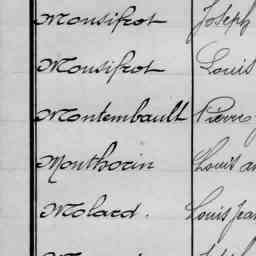 Monsifrot Joseph
Monsifrot Louis
Montembault Pierre
Monthorin Louis
Molard. Louis